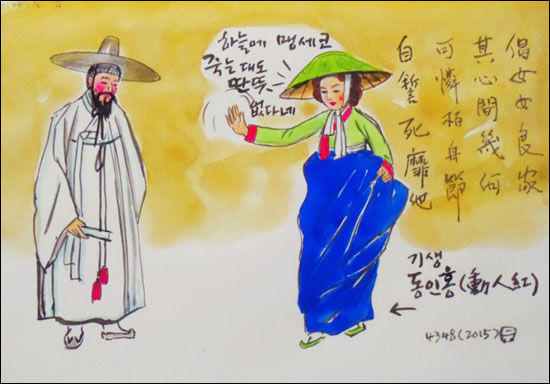 하늘에 맹세코
죽는대도
딴뜻
없다네
倡女女良家
其心間幾何
可憐栢舟節
自誓死靡他
기생
동인홍(動人紅)
4348(2015)